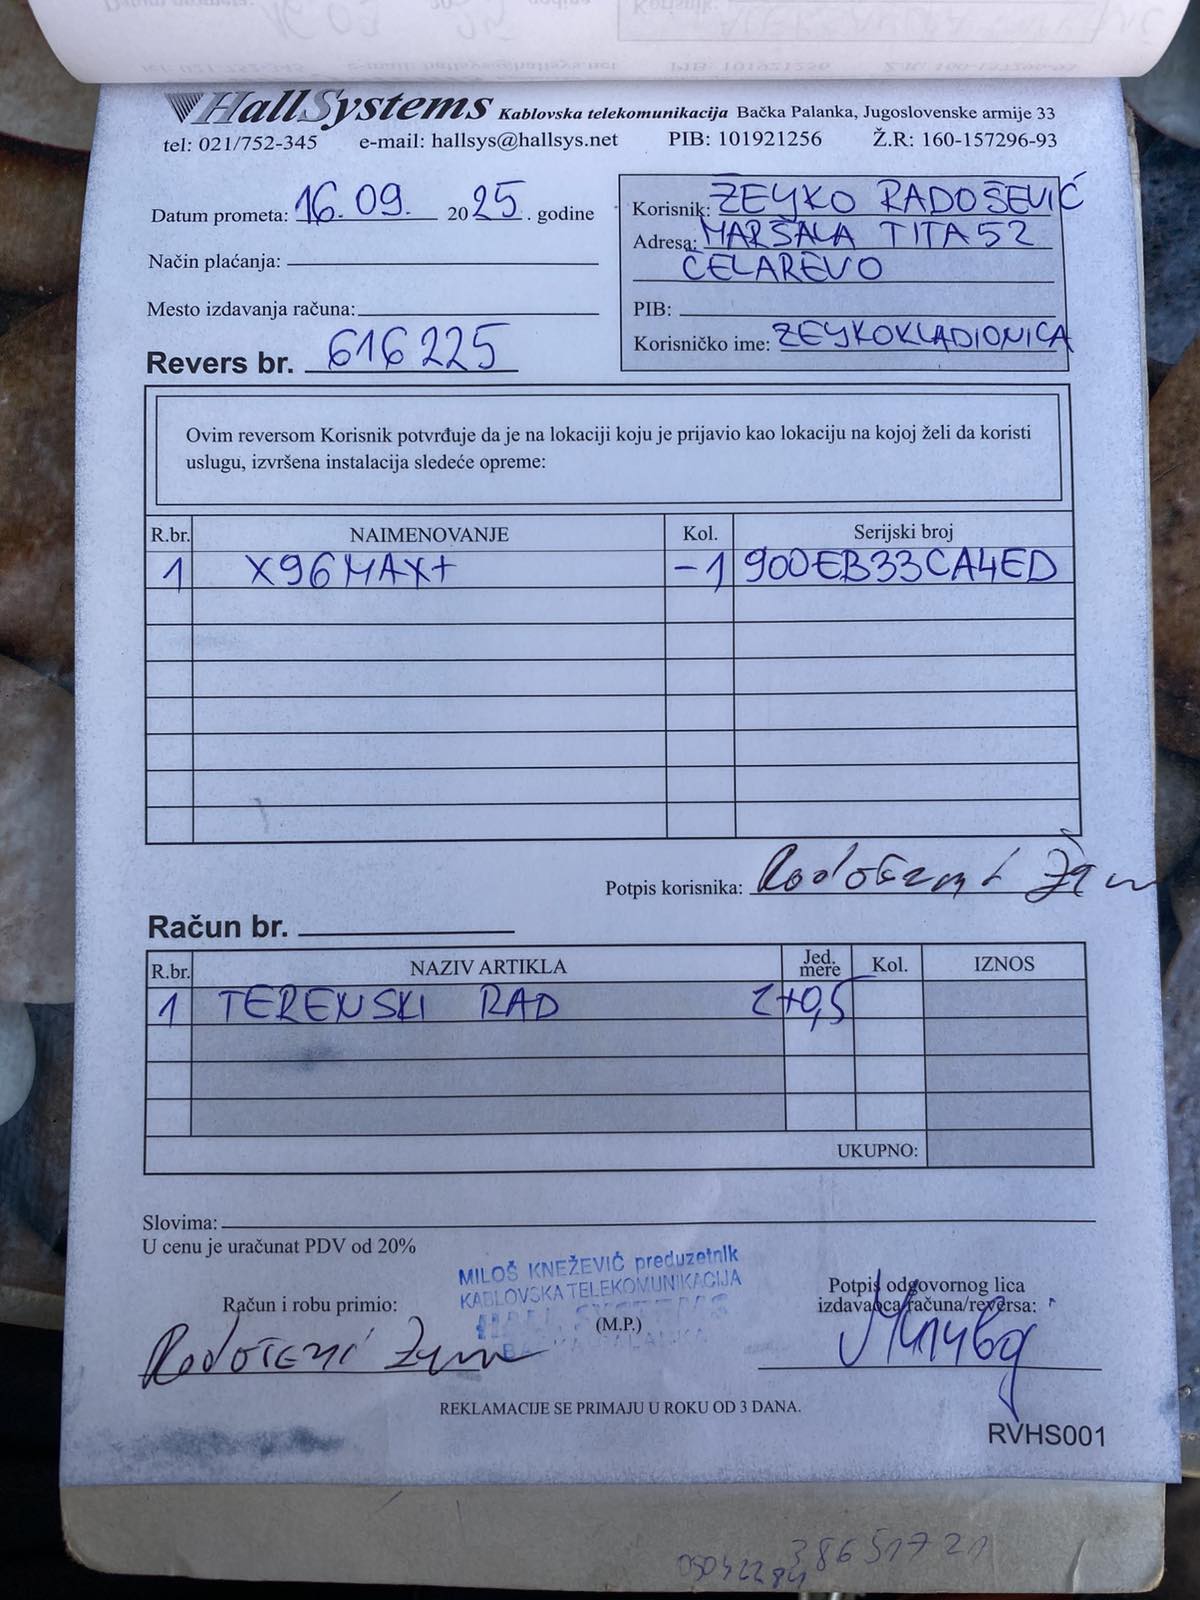 HallSystems Kablovska telekomunikacija Bačka Palanka, Jugoslovenske armije 33
tel: 021/752-345 e-mail: hallsys@hallsys.net PIB: 101921256 Ž.R: 160-157296-93
Datum prometa: 16.09. 2025. godine
Način plaćanja:
Mesto izdavanja računa:
Revers br. 616225
Korisnik: ZEYKO RADOŠEVIĆ
Adresa: MARŠALA TITA 52
ČELAREVO
PIB:
Korisničko ime: ZEYKOKLADIONICA
Ovim reversom Korisnik potvrđuje da je na lokaciji koju je prijavio kao lokaciju na kojoj želi da koristi
uslugu, izvršena instalacija sledeće opreme:
R.br. NAIMENOVANJE Kol. Serijski broj
1 X96MAX+ -1 900EB33CA4ED
Potpis korisnika:
Račun br.
R.br. NAZIV ARTIKLA Jed. mere Kol. IZNOS
1 TERENSKI RAD 2+0,5
UKUPNO:
Slovima:
U cenu je uračunat PDV od 20%
MILOŠ KNEŽEVIĆ preduzetnik
KABLOVSKA TELEKOMUNIKACIJA
Račun i robu primio:
(M.P.)
Potpis odgovornog lica
izdavaoca računa/reversa:
REKLAMACIJE SE PRIMAJU U ROKU OD 3 DANA.
RVHS001
38651721